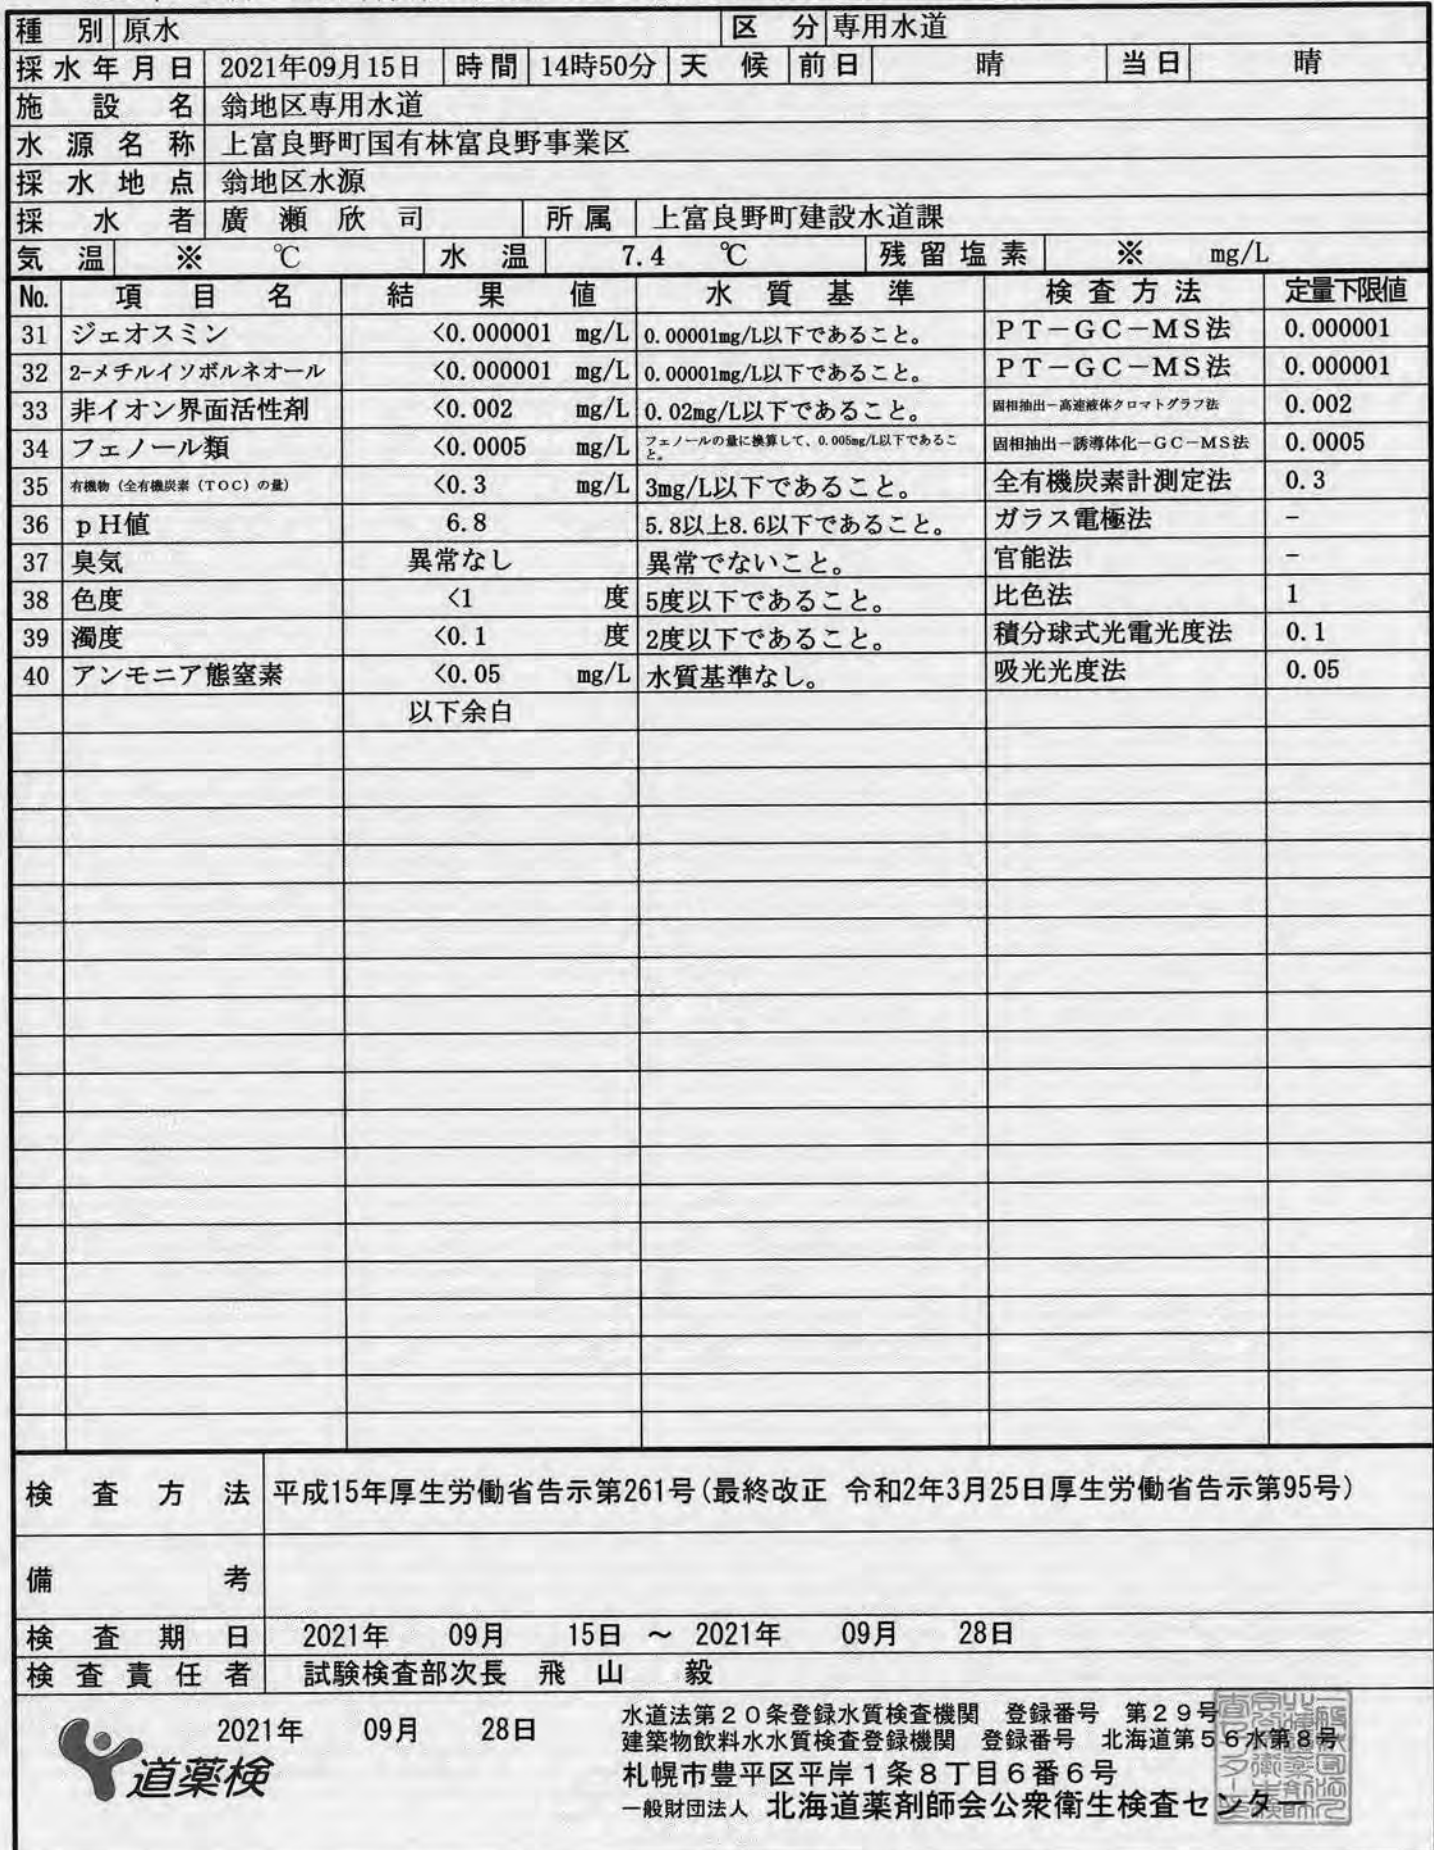 種 別 原水 区 分 専用水道
採水年月日 2021年09月15日 時間 14時50分 天 候 前日 晴 当日 晴
施 設 名 翁地区専用水道
水 源 名 称 上富良野町国有林富良野事業区
採 水 地 点 翁地区水源
採 水 者 廣 瀬 欣 司 所属 上富良野町建設水道課
気 温 ※ ℃ 水 温 7.4 ℃ 残留塩素 ※ mg/L
No. 項 目 名 結 果 値 水 質 基 準 検 査 方 法 定量下限値
31 ジェオスミン <0.000001 mg/L 0.00001mg/L以下であること。 PT－GC－MS法 0.000001
32 2-メチルイソボルネオール <0.000001 mg/L 0.00001mg/L以下であること。 PT－GC－MS法 0.000001
33 非イオン界面活性剤 <0.002 mg/L 0.02mg/L以下であること。 固相抽出－高速液体クロマトグラフ法 0.002
34 フェノール類 <0.0005 mg/L フェノールの量に換算して、0.005mg/L以下であること。 固相抽出－誘導体化－GC－MS法 0.0005
35 有機物（全有機炭素（TOC）の量） <0.3 mg/L 3mg/L以下であること。 全有機炭素計測定法 0.3
36 pH値 6.8 5.8以上8.6以下であること。 ガラス電極法 -
37 臭気 異常なし 異常でないこと。 官能法 -
38 色度 <1 度 5度以下であること。 比色法 1
39 濁度 <0.1 度 2度以下であること。 積分球式光電光度法 0.1
40 アンモニア態窒素 <0.05 mg/L 水質基準なし。 吸光光度法 0.05
以下余白
検 査 方 法 平成15年厚生労働省告示第261号(最終改正 令和2年3月25日厚生労働省告示第95号)
備 考
検 査 期 日 2021年 09月 15日 ～ 2021年 09月 28日
検 査 責 任 者 試験検査部次長 飛 山 毅
水道法第20条登録水質検査機関 登録番号 第29号
2021年 09月 28日
建築物飲料水水質検査登録機関 登録番号 北海道第56水第8号
道薬検
札幌市豊平区平岸1条8丁目6番6号
一般財団法人 北海道薬剤師会公衆衛生検査センター